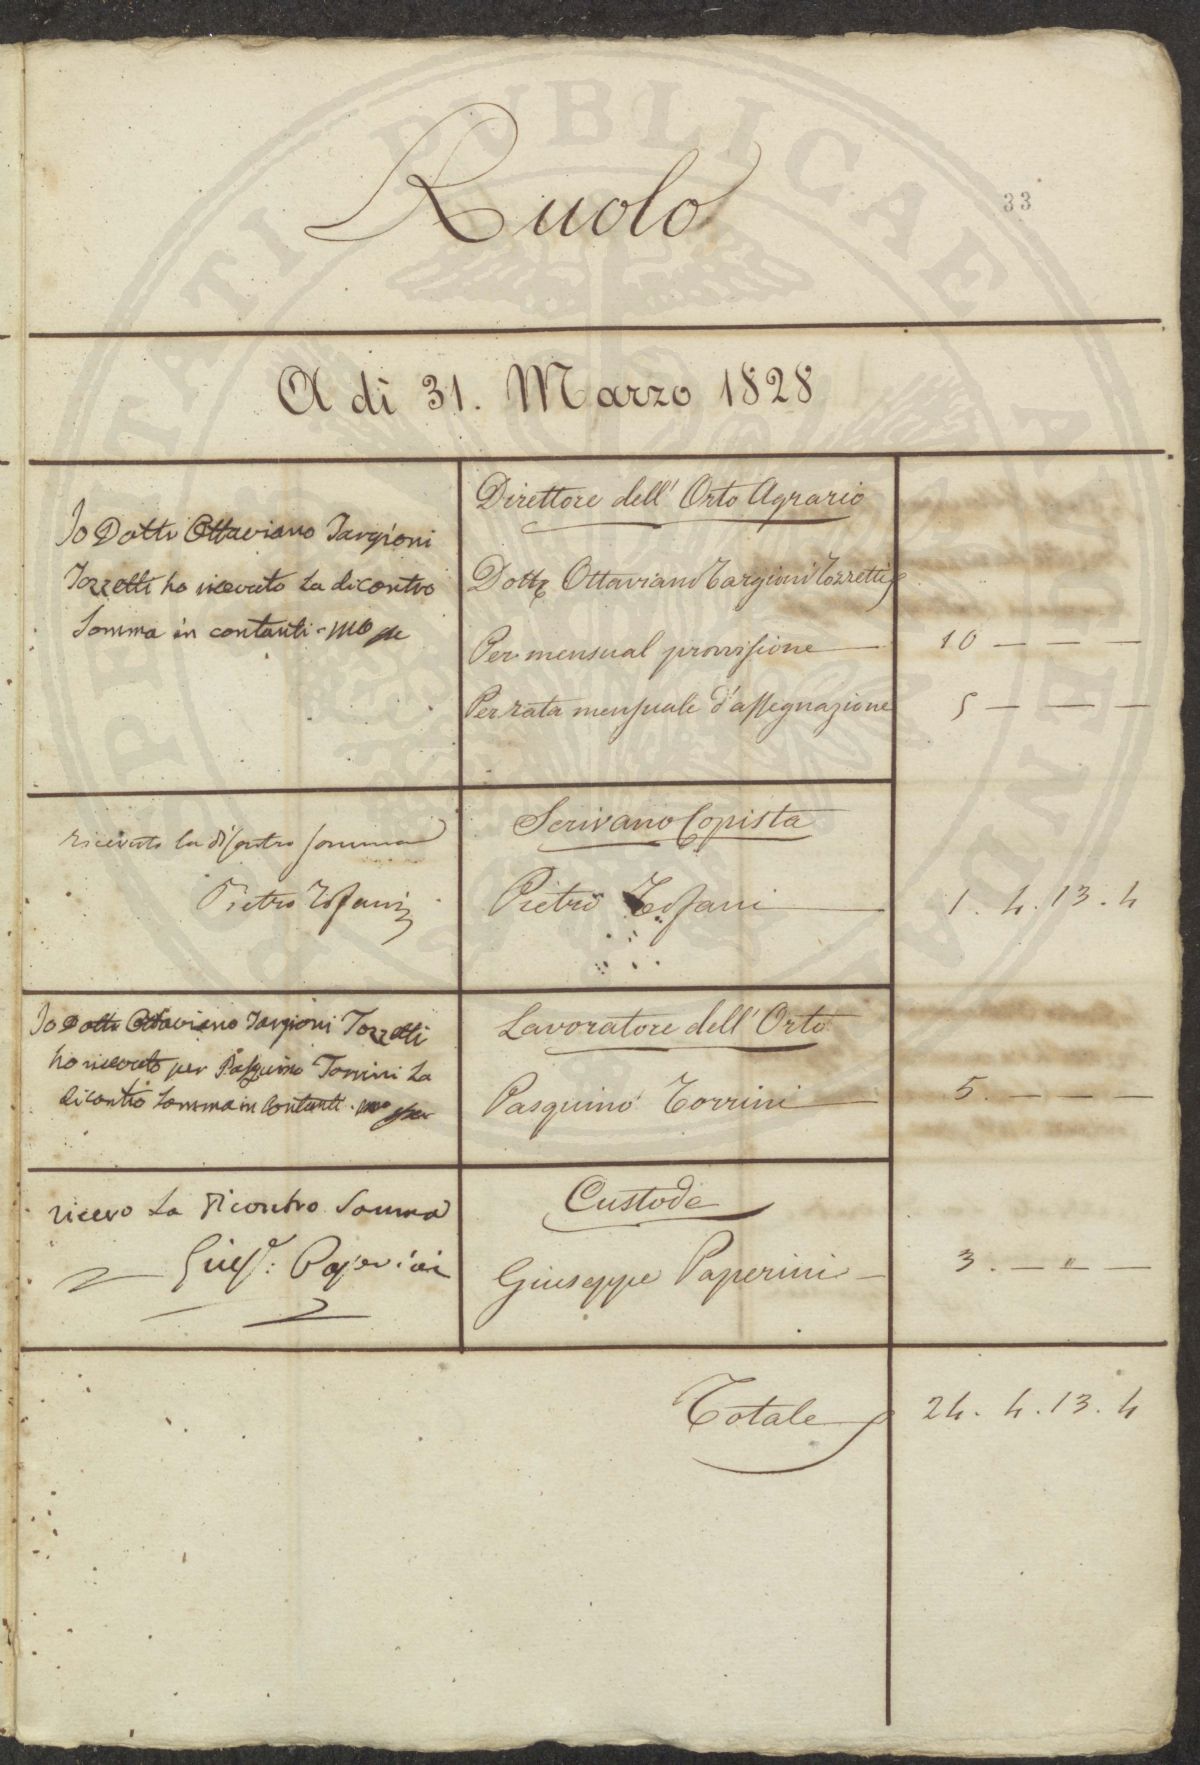 33
Ruolo
A di 31. Marzo 1828
Io Dottr Ottaviano Targioni
Tozzetti ho ricevuto la dicontro
Somma in contanti
Direttore dell' Orto Agrario
Dottr Ottaviano Targioni Tozzetti
Per mensual provvisione 10 — — —
Per rata mensuale d'assegnazione 5 — — —
ricevuto la dicontro somma
Pietro Tofani
Scrivano Copista
Pietro Tofani 1. 4. 13. 4
Io Dottr Ottaviano Targioni Tozzetti
ho ricevuto per Pasquino Torrini La
dicontro Somma in Contanti
Lavoratore dell' Orto
Pasquino Torrini 5. — — —
ricevo La dicontro Somma
Giuse: Paperini
Custode
Giuseppe Paperini 3. — " —
Totale 24. 4. 13. 4
PUBLICAE